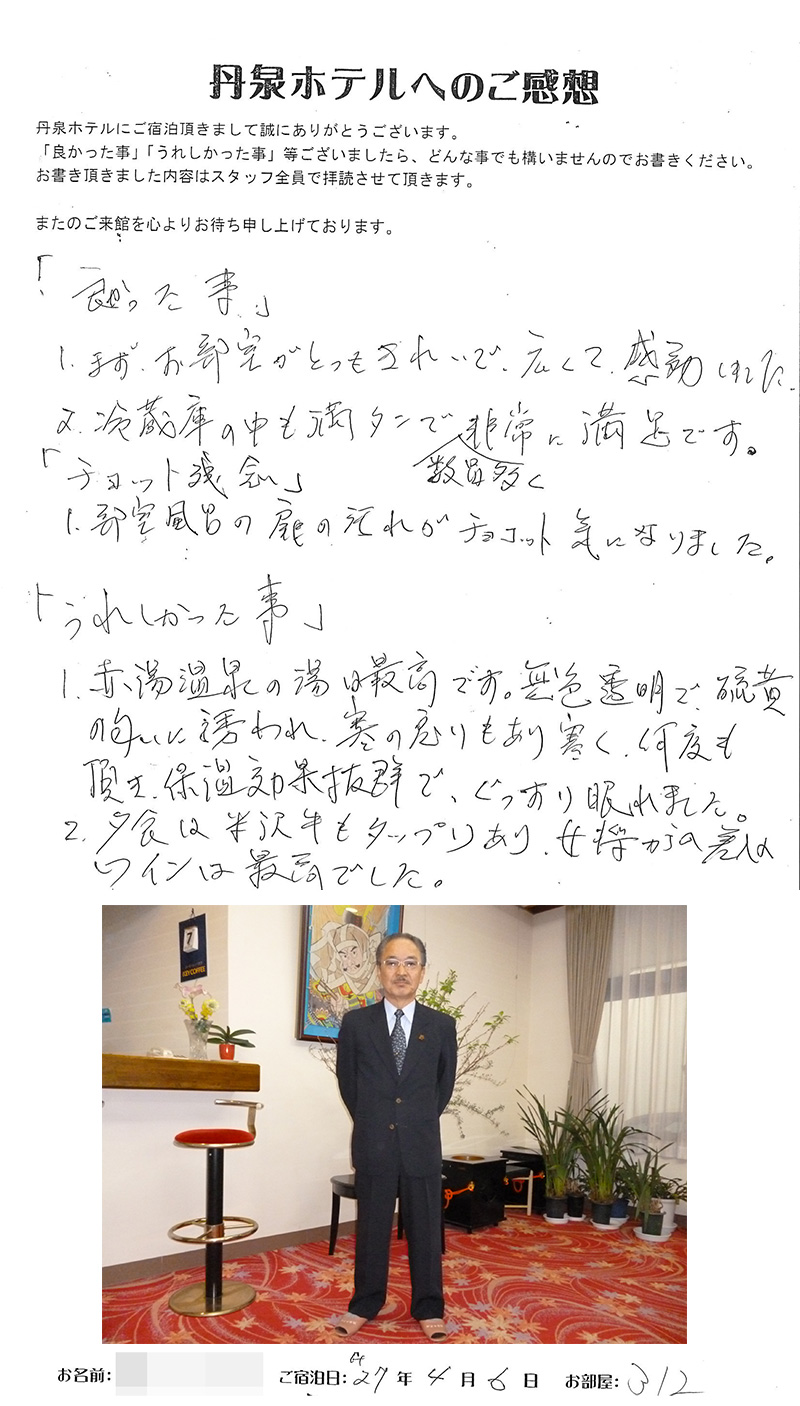 丹泉ホテルへのご感想
丹泉ホテルにご宿泊頂きまして誠にありがとうございます。
「良かった事」「うれしかった事」等ございましたら、どんな事でも構いませんのでお書きください。
お書き頂きました内容はスタッフ全員で拝読させて頂きます。
またのご来館を心よりお待ち申し上げております。
「良かった事」
1. まず、お部室がとってもきれいで、広くて、感動しました。
2. 冷蔵庫の中も満タンで非常に満足です。
「チョット残念」
数員多く
1. 部室風呂の扉の汚れがチョコット気になりました。
「うれしかった事」
1. 赤湯温泉の湯は最高です。無色透明で、硫黄
の匂いに誘われ、寒の戻りもあり寒く、何度も
頂き、保温効果抜群で、ぐっすり眠れました。
2. 夕食は米沢牛もタップリあり、女将からの差入の
ワインは最高でした。
7
KEY COFFEE
お名前: ご宿泊日: H27年4月6日 お部屋: 312